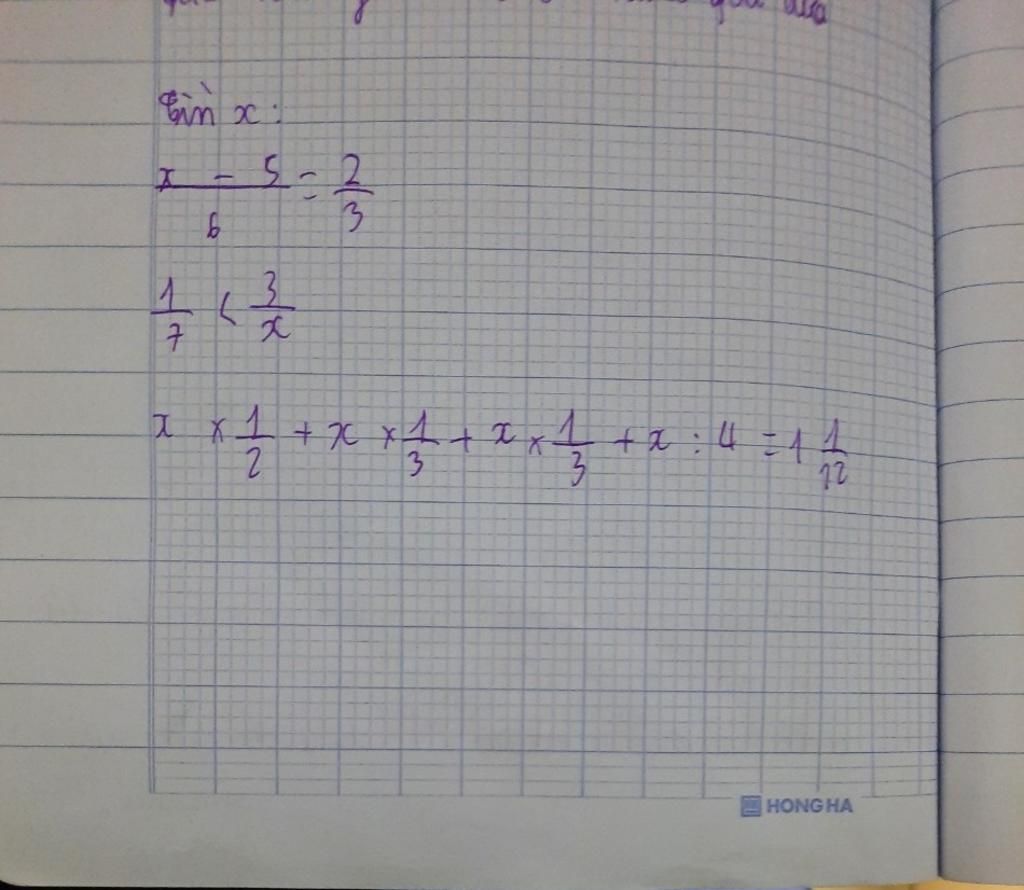 Tìm x:
x - 5 / 6 = 2/3
1/7 < 3/x
x × 1/2 + x × 1/3 + x × 1/3 + x : 4 = 1 1/12
HONG HA